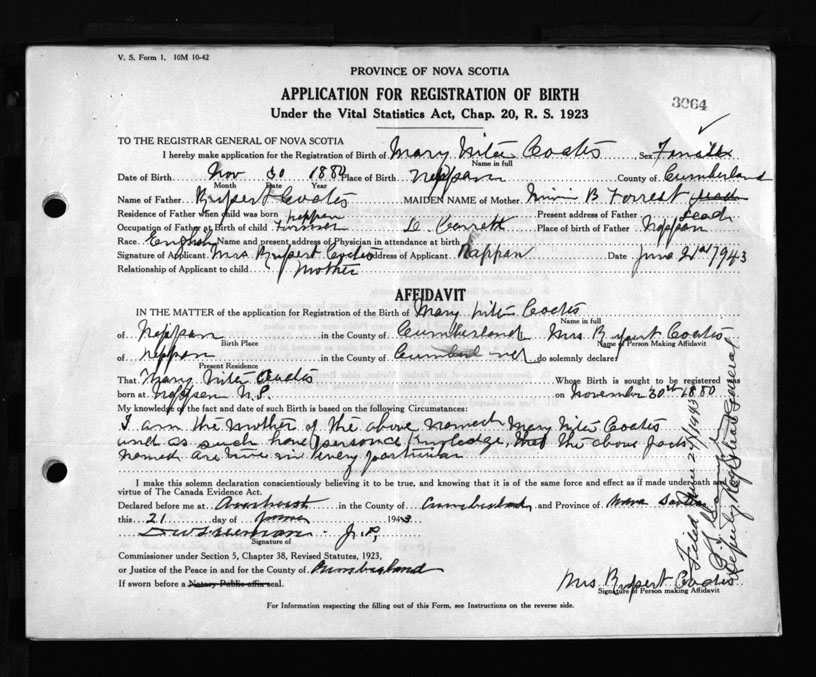 V. S. Form 1. 10M 10-42
PROVINCE OF NOVA SCOTIA
3064
APPLICATION FOR REGISTRATION OF BIRTH
Under the Vital Statistics Act, Chap. 20, R. S. 1923
TO THE REGISTRAR GENERAL OF NOVA SCOTIA
I hereby make application for the Registration of Birth of Mary Coates Sex Female
Name in full
Date of Birth Nov 30 1880 Place of Birth Nappan County of Cumberland
Month Date Year
Name of Father Rupert Coates MAIDEN NAME of Mother B Forrest
Residence of Father when child was born Nappan Present address of Father Dead
Occupation of Father at Birth of child Farmer Place of birth of Father Nappan
Race English Name and present address of Physician in attendance at birth
Signature of Applicant Mrs Rupert Coates Address of Applicant Nappan Date June 21st 1943
Relationship of Applicant to child Mother
AFFIDAVIT
IN THE MATTER of the application for Registration of the Birth of Mary Coates
Name in full
of Nappan in the County of Cumberland Mrs Rupert Coates
Birth Place Name of Person Making Affidavit
of Nappan in the County of Cumberland do solemnly declare
Present Residence
That Mary Coates Whose Birth is sought to be registered
born at Nappan N.S. on November 30th 1880
My knowledge of the fact and date of such Birth is based on the following Circumstances:
I am the mother of the above named Mary Coates
and as such have personal knowledge, that the above facts
named are true in every particular
I make this solemn declaration conscientiously believing it to be true, and knowing that it is of the same force and effect as if made under oath and
virtue of The Canada Evidence Act.
Declared before me at Amherst in the County of Cumberland and Province of Nova Scotia
this 21 day of June 1943
J. P.
Signature of
Commissioner under Section 5, Chapter 38, Revised Statutes, 1923,
or Justice of the Peace in and for the County of Cumberland
If sworn before a Notary Public affix seal.
Mrs. Rupert Coates
Signature of Person making Affidavit
For Information respecting the filling out of this Form, see Instructions on the reverse side.
Filed June 1943
Deputy Registrar General